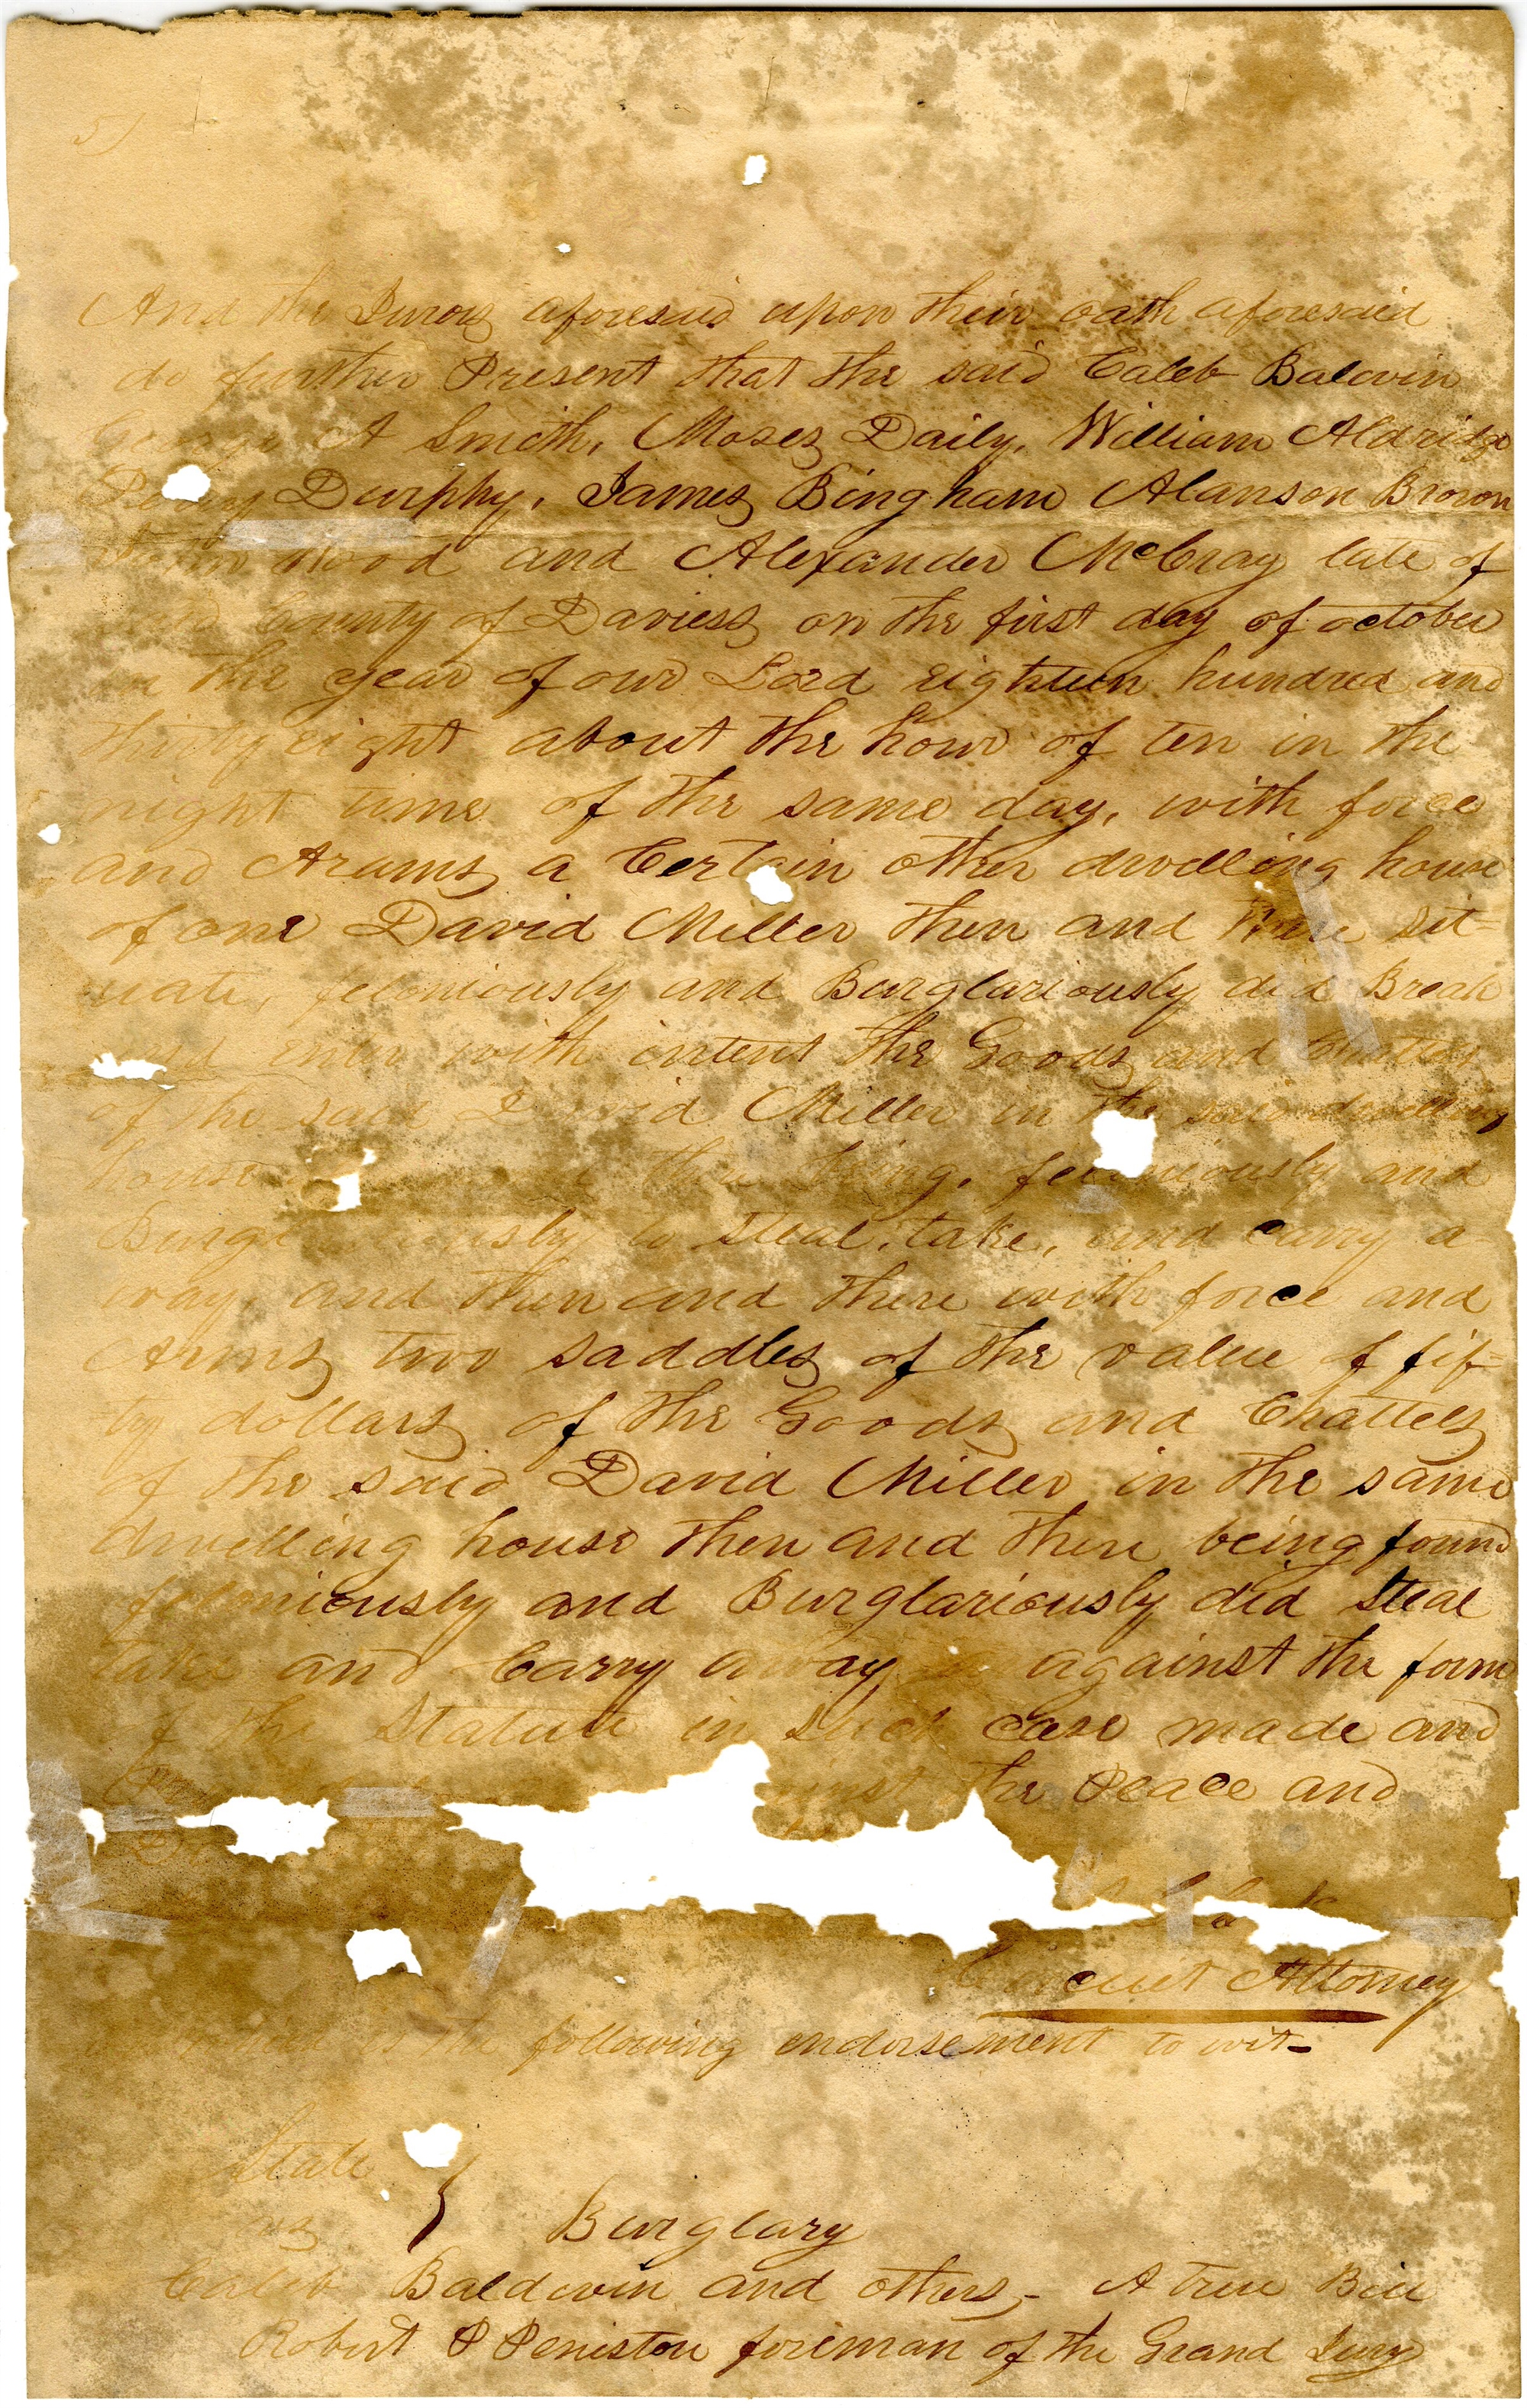 5)
And the Jurors aforesaid upon their oath aforesaid
do further Present that the said Caleb Baldwin
George A Smith, Moses Daily, William Aldridge
Perry Durphy, James Bingham Alanson Brown
John Wood and Alexander McCray late of
County of Daviess on the first day of october
in the year of our Lord eighteen hundred and
thirty eight about the hour of ten in the
night time of the same day, with force
and Arums a Certain other dwelling house
of one David Miller then and there sit=
uate, feloniously and Burglariously did Break
and enter with intent the Goods and Chattles
of the said David Miller in the said dwelling
house then being, feloniously and
Burgl usly to steal, take, and carry a-
way, and then and there with force and
Arms two saddles of the value of fif=
ty dollars of the Goods and Chattels
of the said David Miller in the same
dwelling house then and there being found
feloniously and Burglariously did steal
take and Carry away against the form
of the Statute in such case made and
the Peace and
Circuit Attorney
is the following endorsement to wit-
State
vs } Burglary
Caleb Baldwin and others,- A true Bill
Robert P Peniston foreman of the Grand Jury